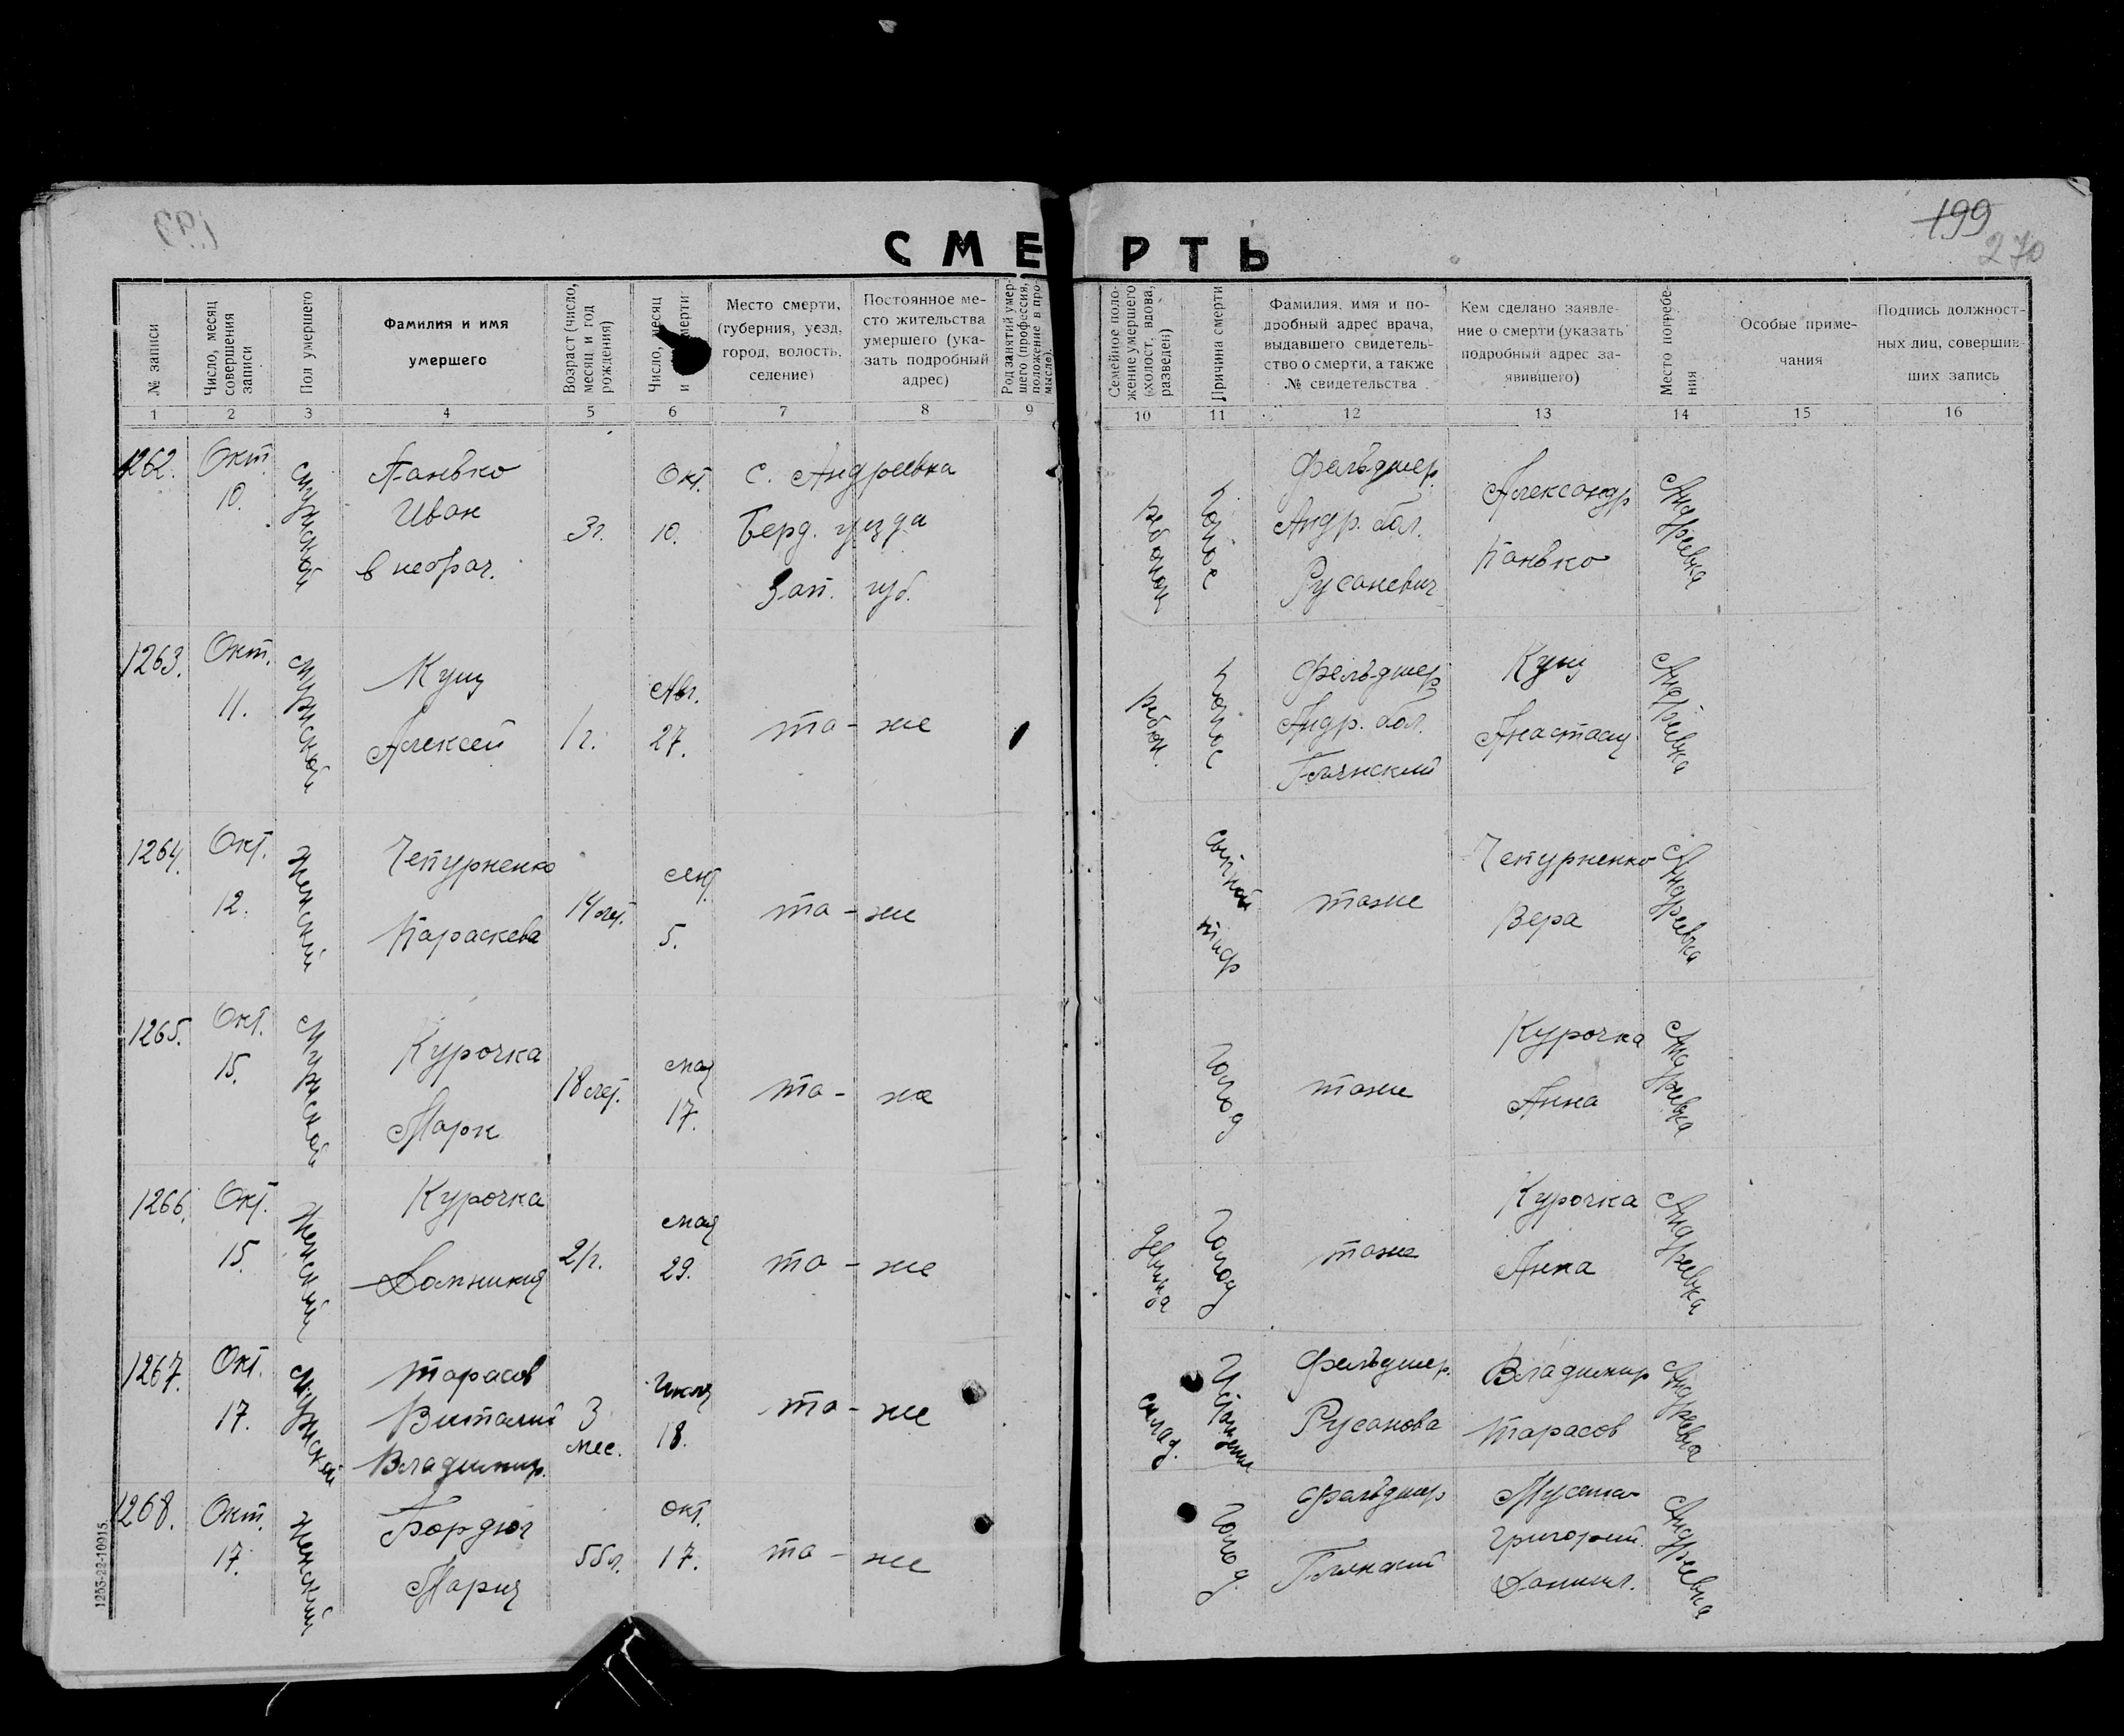 199
270
СМЕРТЬ
№ записи
Число, месяц совершения записи
Пол умершего
Фамилия и имя умершего
Возраст (число, месяц и год рождения)
Число, месяц и смерти
Место смерти, (губерния, уезд, город, волость, селение)
Постоянное место жительства умершего (указать подробный адрес)
Род занятий умершего (профессия, положение в промысле).
Семейное положение умершего (холост, вдова, разведен)
Причина смерти
Фамилия, имя и подробный адрес врача, выдавшего свидетельство о смерти, а также № свидетельства
Кем сделано заявление о смерти (указать подробный адрес заявившего)
Место погребения
Особые примечания
Подпись должностных лиц, совершивших запись
1 2 3 4 5 6 7 8 9 10 11 12 13 14 15 16
1262. Окт 10. мужской Панько Иван внебрач. 3г. Окт. 10. с. Андреевка Берд. уезда Зап. губ. ребенок понос Фельдшер Андр. бол. Русаневич Александр Панько Андреевка
1263. Окт. 11. мужской Кущ Алексей 1г. Авг. 27. та-же ребен. понос Фельдшер Андр. бол. Кущ Анастас Андреевка
1264. Окт. 12. женский Чепурненко Параскева 14 лет. сент. 5. та-же сыпной тиф тоже Чепурненко Вера Андреевка
1265. Окт. 15. мужской Курочка Марк 18 лет. мая 17. та-же голод тоже Курочка Анна Андреевка
1266. Окт. 15. женский Курочка Домникия 21г. мая 29. та-же девица голод тоже Курочка Анна Андреевка
1267. Окт. 17. мужской Тарасов Виталий Владимир. 3 мес. Июля 18. та-же млад. Истощения Фельдшер. Русанова Владимир Тарасов Андреевка
1268. Окт. 17. женский Бордюг Мария 55л. окт. 17. та-же голод. Фельдшер Григорий Данил. Андреевка
1253-22-10015.